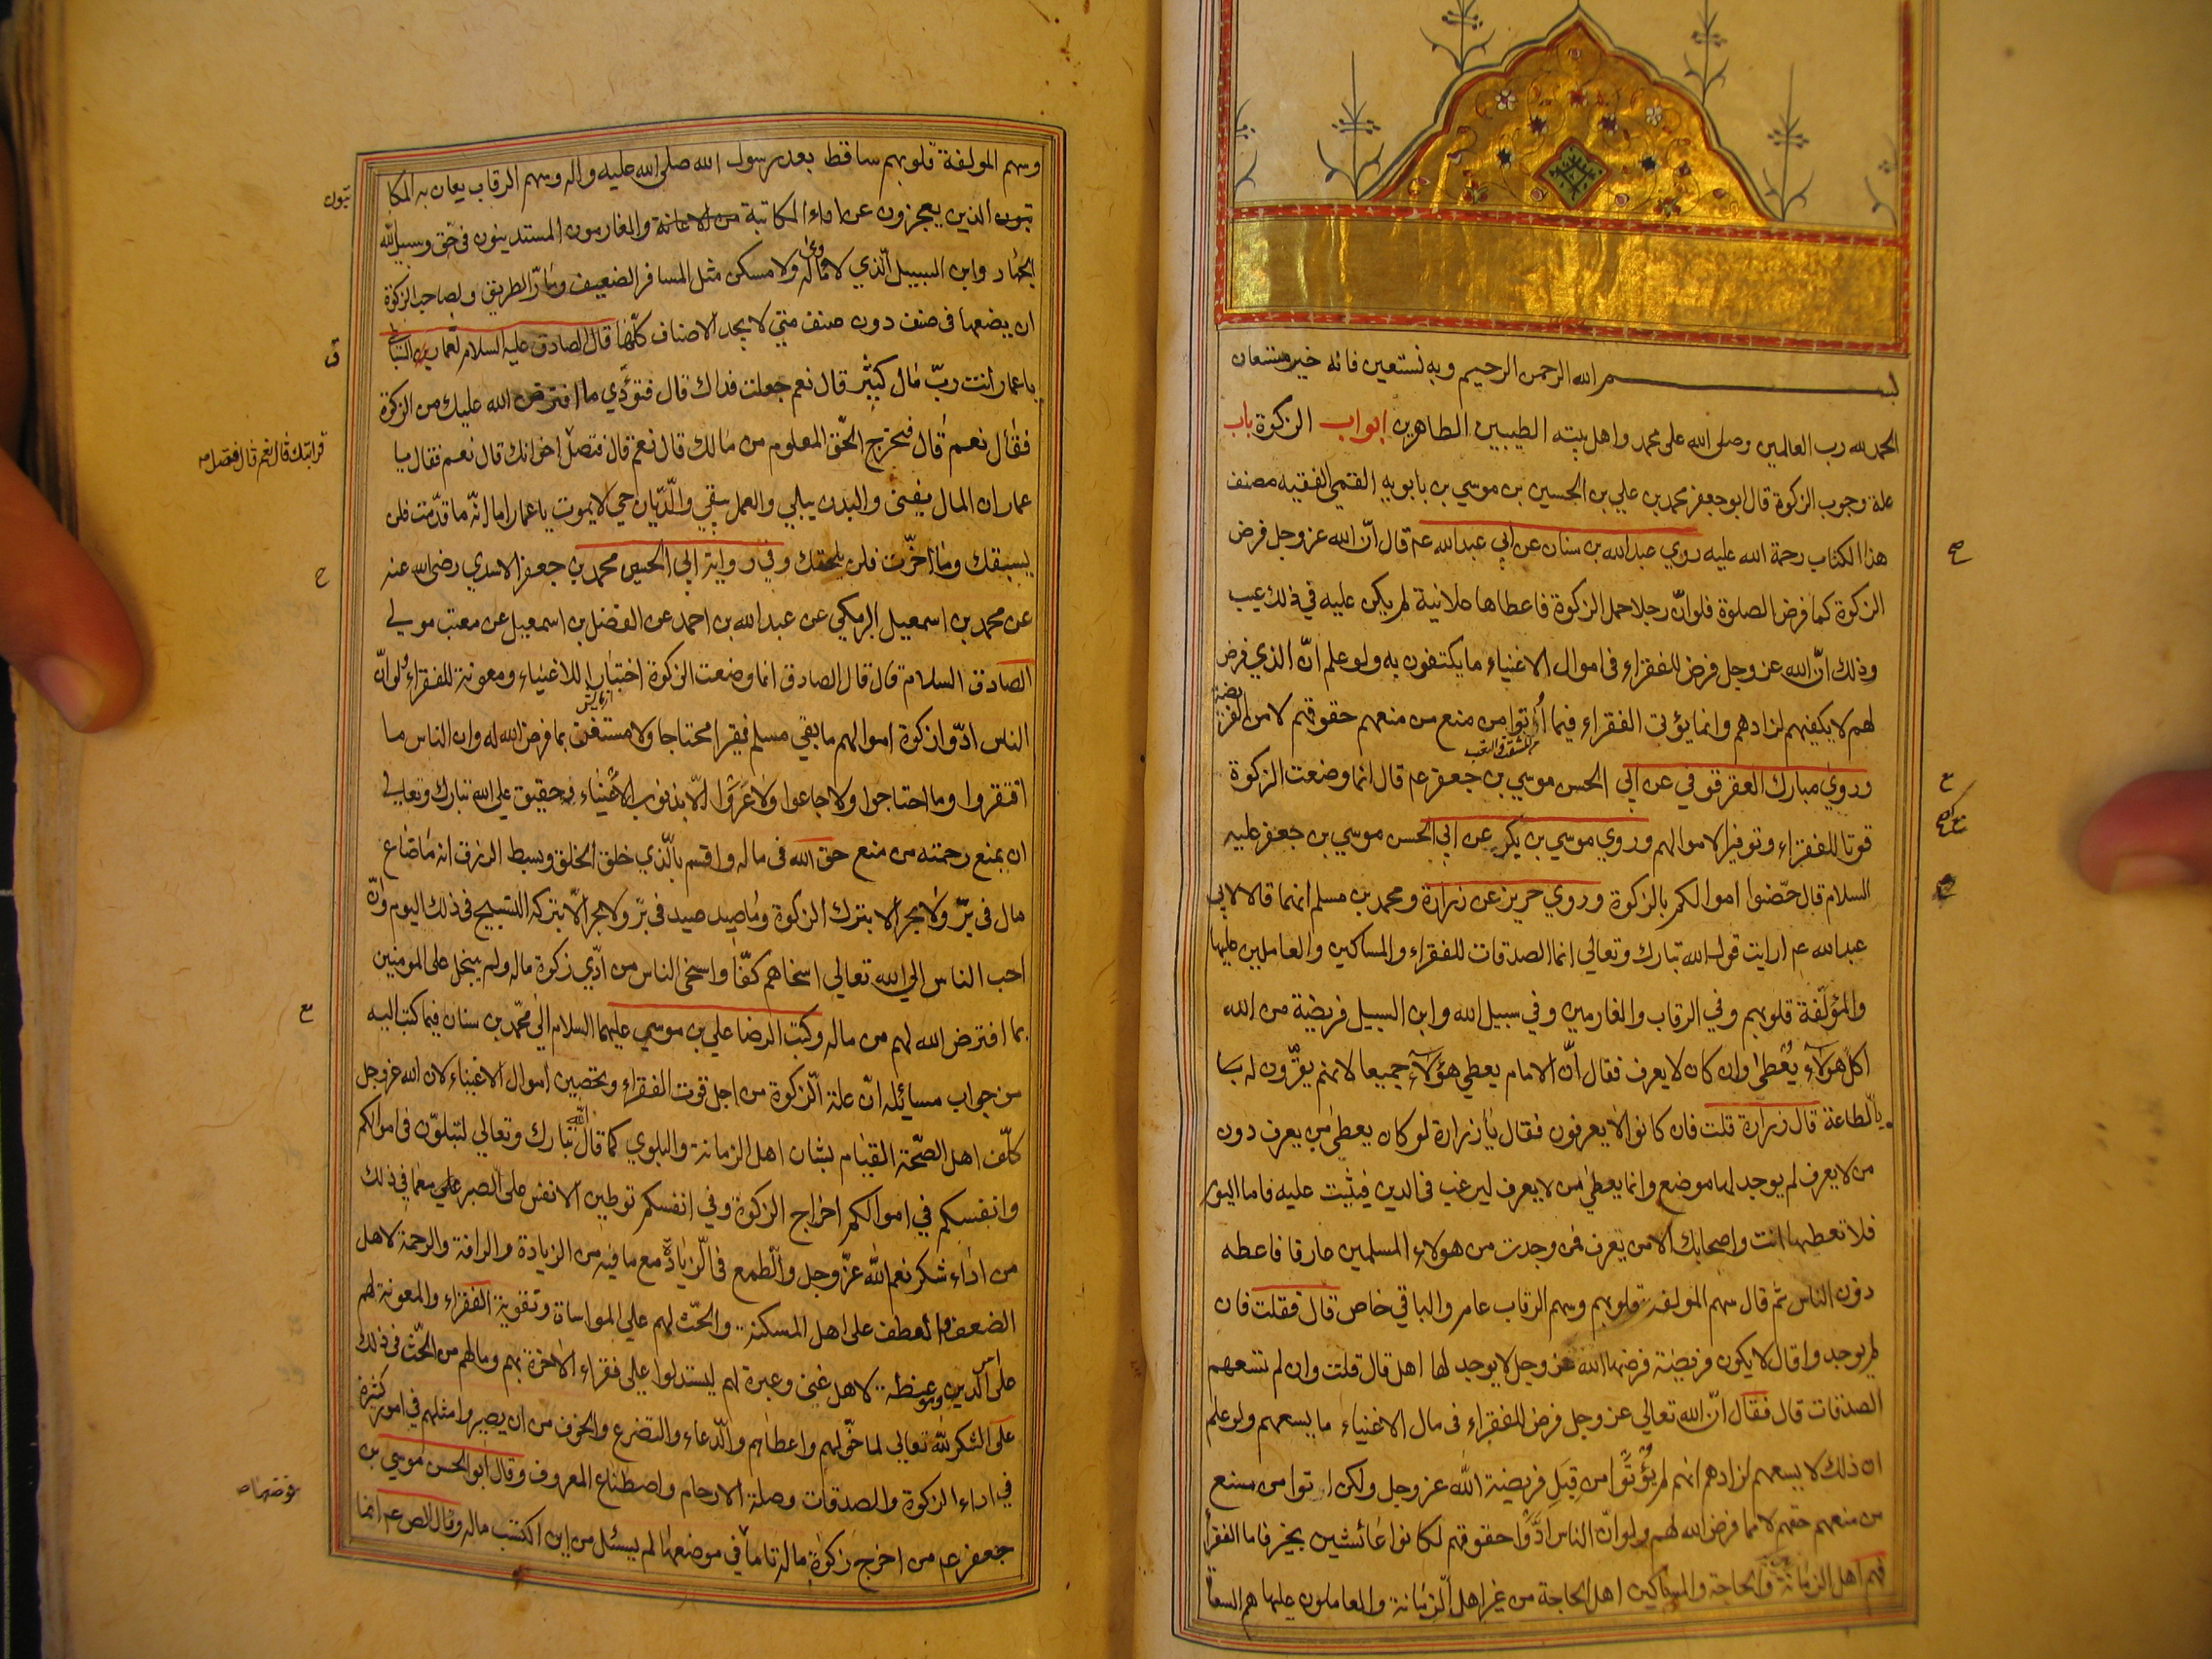 بسم الله الرحمن الرحيم وبه نستعين فانه خير مستعان
الحمد لله رب العالمين وصلى الله على محمد واهل بيته الطيبين الطاهرين ابواب الزكوة باب
علة وجوب الزكوة قال ابو جعفر محمد بن علي بن الحسين بن موسي بن بابويه القمي الفقيه مصنف
هذا الكتاب رحمة الله عليه روي عبد الله بن سنان عن ابي عبد الله عم قال انّ الله عز وجل فرض
الزكوة كما فرض الصلوة فلو انّ رجلا حمل الزكوة فاعطاها علانية لم يكن عليه في ذلك عيب
وذلك انّ الله عز وجل فرض للفقراء في اموال الاغنياء ما يكتفون به ولو علم انّ الذي فرض
لهم لا يكفيهم لزادهم وانما يؤتى الفقراء فيما أوتوا من منع من منعهم حقوقهم لا من الفريضة
وروي مبارك العقرقوفي عن ابي الحسن موسي بن جعفر عم قال انما وضعت الزكوة
قوتا للفقراء وتوفيرا لاموالهم وروي موسي بن بكر عن ابي الحسن موسي بن جعفر عليه
السلام قال حصّنوا اموالكم بالزكوة وروي حريز عن زرارة ومحمد بن مسلم انهما قالا لابي
عبد الله عم ارايت قول الله تبارك وتعالي انما الصدقات للفقراء والمساكين والعاملين عليها
والمؤلّفة قلوبهم وفي الرقاب والغارمين وفي سبيل الله وابن السبيل فريضة من الله
اكلّ هؤلاء يُعْطى وان كان لا يعرف فقال انّ الامام يعطي هؤلاء جميعا لانهم يقرّون له
بالطاعة قال زرارة قلت فان كانوا لا يعرفون فقال يا زرارة لو كان يعطي من يعرف دون
من لا يعرف لم يوجد لها موضع وانما يعطي من لا يعرف ليرغب في الدين فيثبت عليه فاما اليوم
فلا تعطها انت واصحابك الا من يعرف فمن وجدت من هولاء المسلمين عارفا فاعطه
دون الناس ثم قال سهم المولفة قلوبهم وسهم الرقاب عام والباقي خاص قال فقلت فان
لم يوجدوا قال لا يكون فريضة فرضها الله عز وجل لا يوجد لها اهل قال قلت وان لم تسعهم
الصدقات قال فقال انّ الله تعالي عز وجل فرض للفقراء في مال الاغنياء ما يسعهم ولو علم
ان ذلك لا يسعهم لزادهم انهم لم يُؤْتَوْا من قِبَلِ فريضة الله عز وجل ولكن اوتوا من منع
من منعهم حقهم لا مما فرض الله لهم ولو انّ الناس ادَّوْا حقوقهم لكانوا عائشين بخير فاما الفقراء
فهم اهل الزمانة والحاجة والمساكين اهل الحاجة من غير اهل الزمانة والعاملون عليها هم السعاة
وسهم المولفة قلوبهم ساقط بعد رسول الله صلى الله عليه واله وسهم الرقاب يعان به المكا
تبون الذين يعجزون عن اداء المكاتبة والغارمون المستدينون في حق وسبيل الله
الجهاد وابن السبيل الّذي لا مأوى له ولا مسكن مثل المسافر الضعيف ومارّ الطريق ولصاحب الزكوة
ان يضعها في صنف دون صنف متي لا يجد الاصناف كلّها قال الصادق عليه السلام لعمار
يا عمار انت ربّ مال كثير قال نعم جعلت فداك قال فتؤدّي ما افترض الله عليك من الزكوة
فقال نعم قال فتخرج الحّق المعلوم من مالك قال نعم قال فتصل اخوانك قال نعم فقال يا
عمار ان المال يفنى والبدن يبلي والعمل يبقي والدّيّان حي لا يموت يا عمار اما انّه ما قدّمت فلن
يسبقك وما اخّرت فلن يلحقك وفي رواية ابي الحسين محمد بن جعفر الاسدي رضي الله عنه
عن محمد بن اسمعيل البرمكي عن عبد الله بن احمد عن الفضل بن اسمعيل عن معتب مولي
الصادق السلام قال قال الصادق انما وضعت الزكوة اختبارا للاغنياء ومعونة للفقراء ولو انّ
الناس ادّوا زكوة اموالهم ما بقي مسلم فقيرا محتاجا ولاستغنى بما فرض الله له وان الناس ما
افتقروا وما احتاجوا ولا جاعوا ولا عروا الّا بذنوب الاغنياء وحقيق على الله تبارك وتعالي
ان يمنع رحمته من منع حق الله في ماله واقسم بالّذي خلق الخلق وبسط الرزق انه ما ضاع
مال في برّ ولا بحر الا بترك الزكوة وما صيد صيد في برّ ولا بحر الّا بتركه التسبيح في ذلك اليوم وانّ
احب الناس الي الله تعالي اسخاهم كفّا واسخى الناس من ادّي زكوة ماله ولم يبخل على المومنين
بما افترض الله لهم من ماله وكتب الرضا علي بن موسي عليهما السلام الى محمّد بن سنان فيما كتب اليه
من جواب مسائله انّ علة الزكوة من اجل قوت الفقراء وتحصين اموال الاغنياء لان الله عز وجل
كلّف اهل الصّحّة القيام بشان اهل الزمانة والبلوي كما قال الله تبارك وتعالي لتبلونّ في اموالكم
وانفسكم في اموالكم اخراج الزكوة وفي انفسكم توطين الانفس على الصبر مع ما في ذلك
من اداء شكر نعم الله عزّ وجل والطمع في الزيادة مع ما فيه من الزيادة والرافة والرحمة لاهل
الضعف والعطف على اهل المسكنة والحثّ لهم علي المواساة وتقوية الفقراء والمعونة لهم
على امر الدين وموعظة لاهل غنى وعبرة لهم ليستدلوا علي فقراء الاخرة بهم وما لهم من الحثّ في ذلك
على الشكر لله تعالي لما خوّلهم واعطاهم والدّعاء والتضرع والخوف من ان يصيروا مثلهم في امور كثيرة
في اداء الزكوة والصدقات وصلة الارحام واصطناع المعروف وقال ابو الحسن موسي بن
جعفر عم من اخرج زكوة ماله تاما في موضعها لم يسئل من اين اكتسب ماله وقال الص عم انما
تبون
قرابتك قال نعم قال فتصل